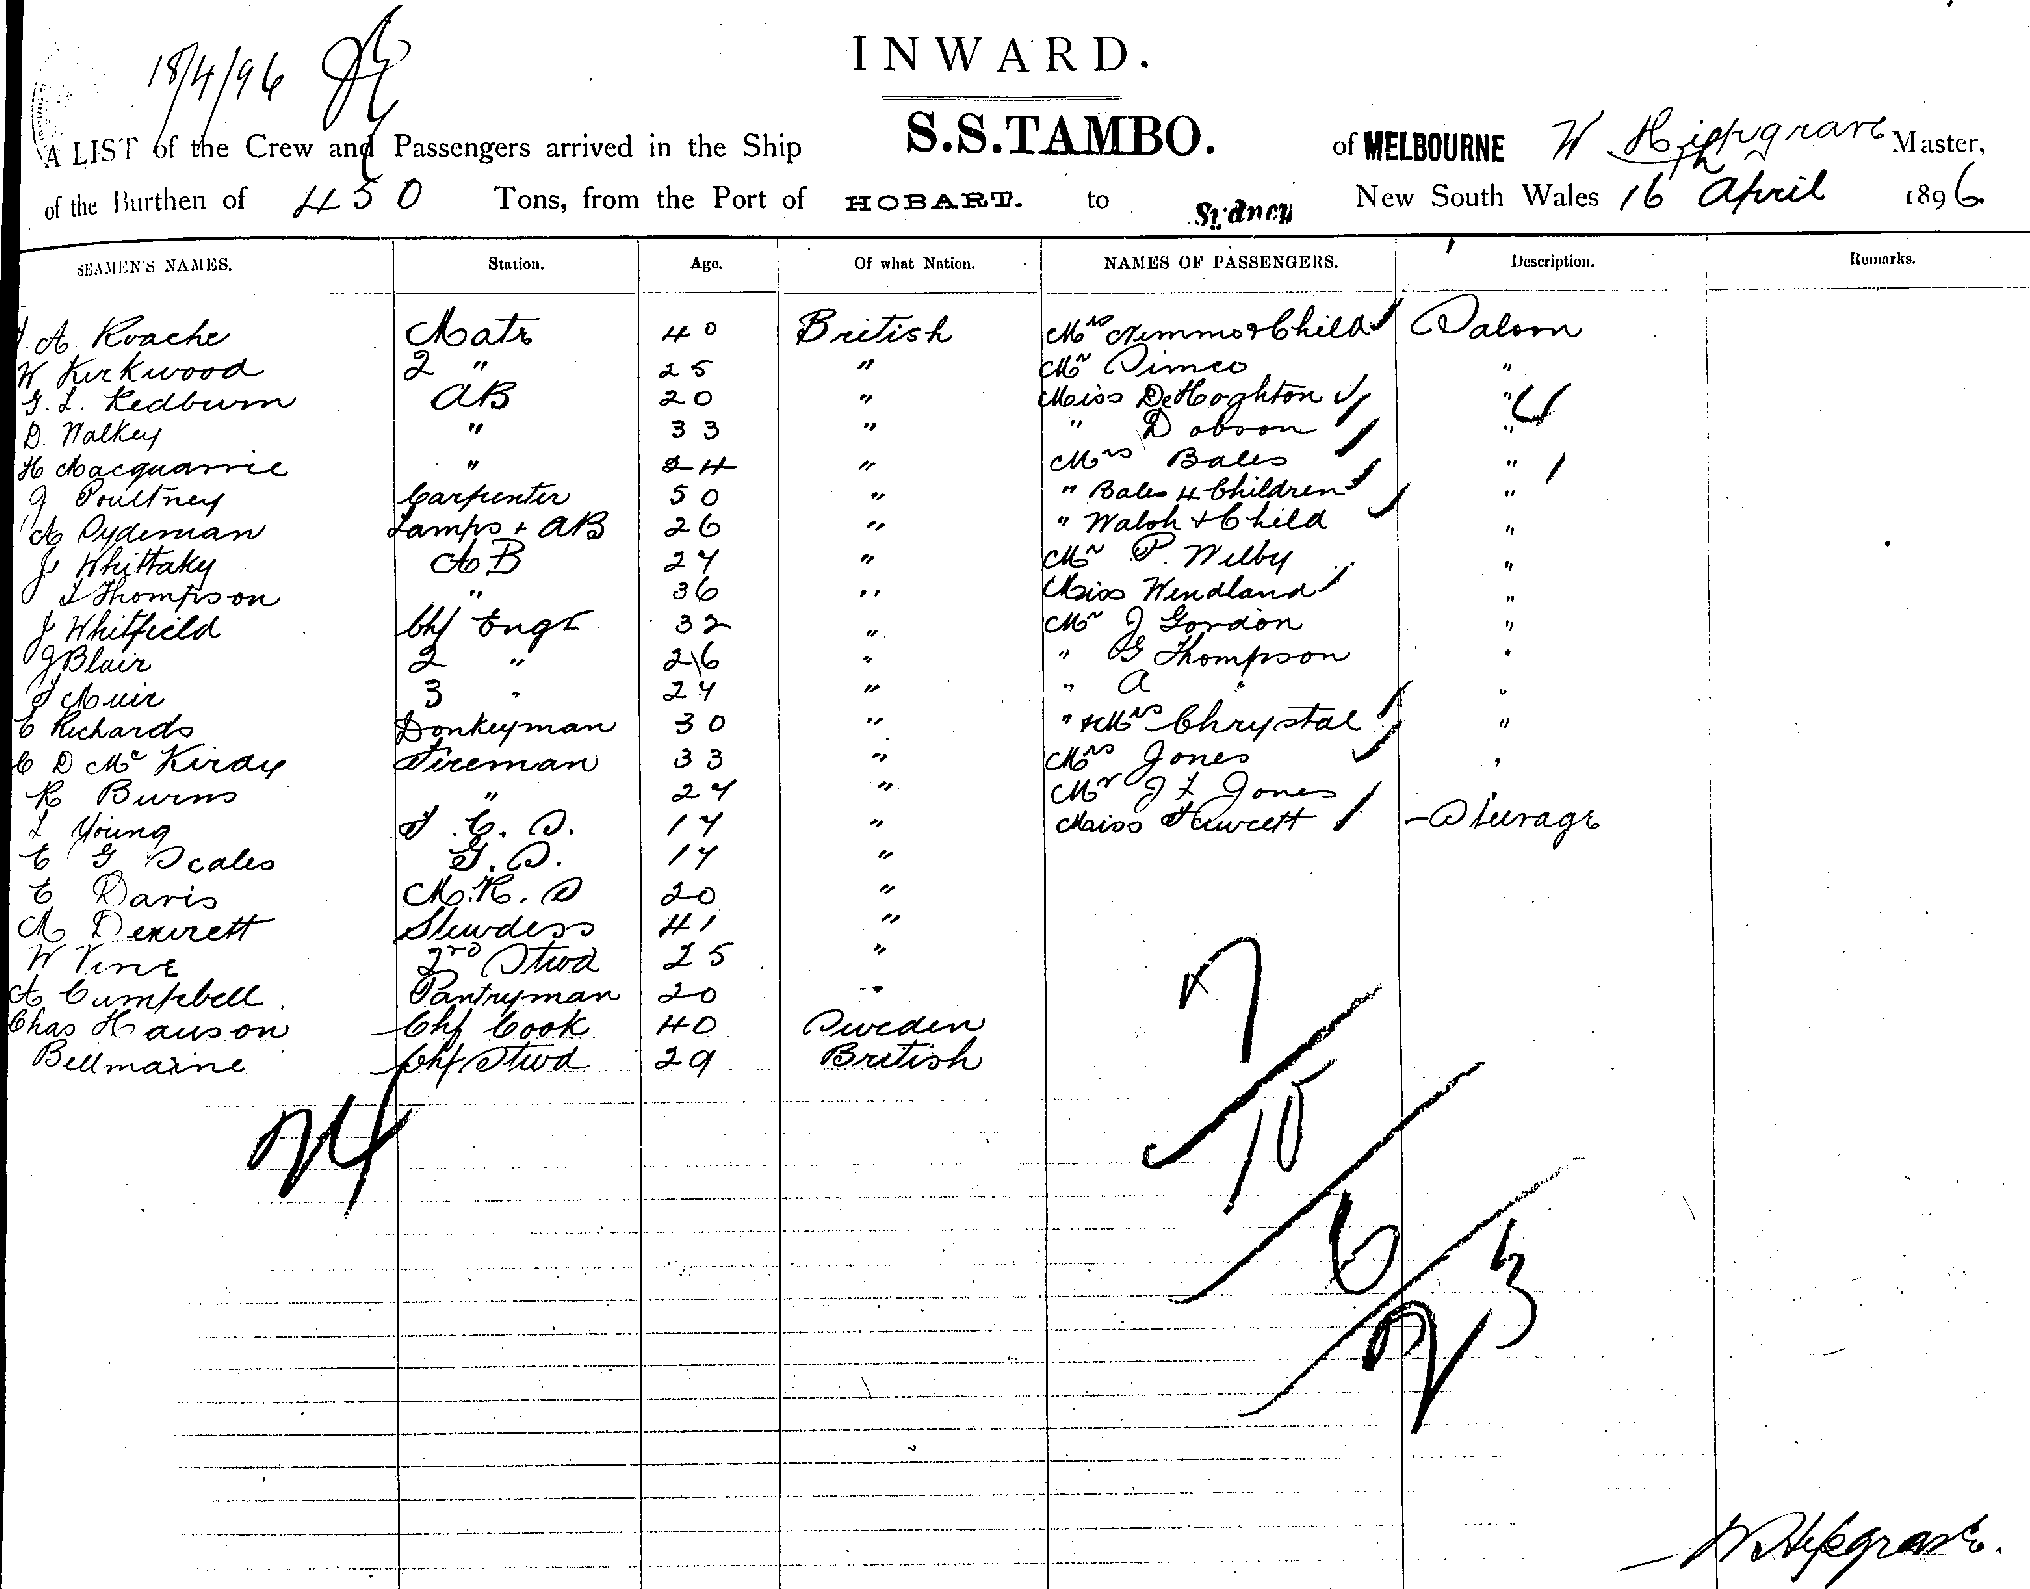 INWARD.
18/4/96
A LIST of the Crew and Passengers arrived in the Ship S.S.TAMBO. of MELBOURNE W Hipgrave Master,
of the Burthen of 450 Tons, from the Port of HOBART. to Sydney New South Wales 16th April 1896
SEAMEN'S NAMES. Station. Age. Of what Nation. NAMES OF PASSENGERS. Description. Remarks.
A Roache Mate 40 British Mrs Nemmo & Child Saloon
W Kirkwood 2 " 25 " Mr Simco "
G. L. Redburn AB 20 " Miss DeHoghton " 4
D. Walkey " 33 " " Dobson "
H Macquarrie " 24 " Mrs Bales " 1
J Poultney Carpenter 50 " " Bales 4 Children "
A Sydeman Lamps & AB 26 " " Walsh & Child "
J Whittaky AB 27 " Mr P. Wilby "
J L Thompson " 36 " Miss Wendland "
J Whitfield Chf Engr 32 " Mr J Gordon "
J Blair 2 " 26 " " G Thompson "
T Muir 3 " 27 " " A " "
C Richards Donkeyman 30 " " & Mrs Chrystal "
C D McKirdy Fireman 33 " Mrs Jones "
R Burns " 27 " Mr J F Jones
L Young F. C. S. 17 " Miss Fawcett Steerage
C G Scales G. S. 17 "
C Davis M. R. S 20 "
M Deverett Stewdess 41 "
W Vine 2nd Stwd 25 "
A Cumpbell Pantryman 20 "
Chas Hanson Chf Cook 40 Sweden
Bellmaine Chf Stwd 29 British
7
24
10
6
3
27
W Hipgrave.